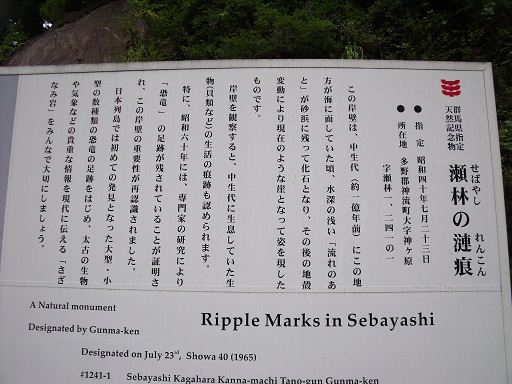 群馬県指定
天然記念物
せばやし
れんこん
瀬林の漣痕
● 指定 昭和四十年七月二十三日
● 所在地 多野郡神流町大字神ヶ原
字瀬林一、二四一の一
この岸壁は、中生代（約一億年前）にこの地
方が海に面していた頃、水深の浅い「流れのあ
と」が砂浜に残って化石となり、その後の地殻
変動により現在のような崖となって姿を現した
ものです。
岸壁を観察すると、中生代に生息していた生
物（貝類など）の生活の痕跡も認められます。
特に、昭和六十年には、専門家の研究により
「恐竜」の足跡が残されていることが証明さ
れ、この岸壁の重要性が再認識されました。
日本列島では初めての発見となった大型・小
型の数種類の恐竜の足跡をはじめ、太古の生物
や気象などの貴重な情報を現代に伝える「さざ
なみ岩」をみんなで大切にしましょう。
A Natural monument
Designated by Gunma-ken
Ripple Marks in Sebayashi
Designated on July 23rd, Showa 40 (1965)
#1241-1 Sebayashi Kagahara Kanna-machi Tano-gun Gunma-ken